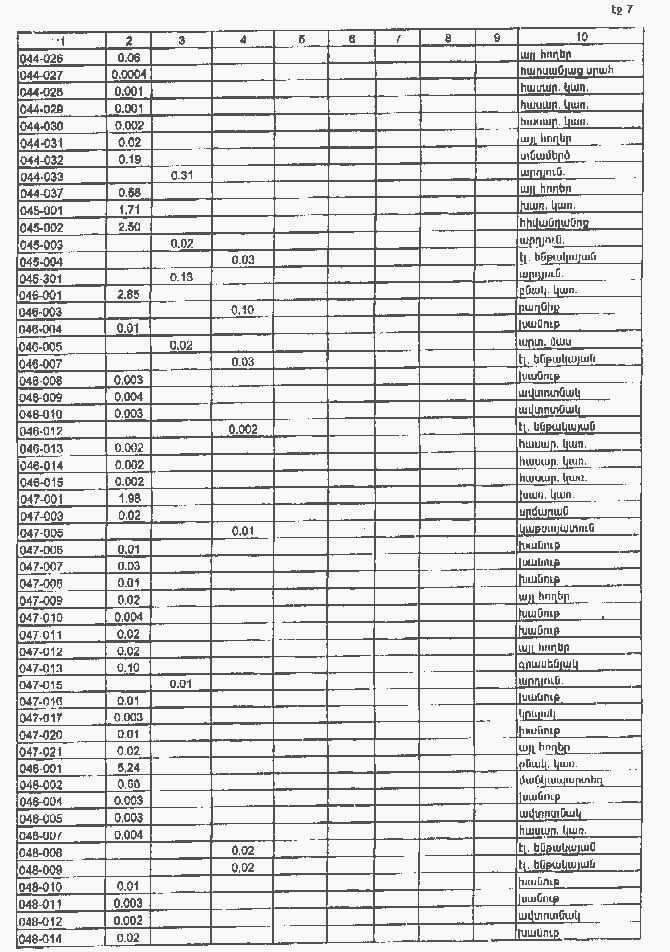 էջ 7
1 2 3 4 5 6 7 8 9 10
044-026 0.06 այլ հողեր
044-027 0.0004 հարսանյաց սրահ
044-028 0.001 հասար. կառ.
044-029 0.001 հասար. կառ.
044-030 0.002 հասար. կառ.
044-031 0.02 այլ հողեր
044-032 0.19 տնամերձ
044-033 0.31 արդյուն.
044-037 0.58 այլ հողեր
045-001 1.71 խառ. կառ.
045-002 2.50 հիվանդանոց
045-003 0.02 արդյուն.
045-004 0.03 էլ. ենթակայան
045-301 0.13 արդյուն.
046-001 2.85 բնակ. կառ.
046-003 0.10 բաղնիք
046-004 0.01 խանութ
046-005 0.02 արտ. մաս
046-007 0.03 էլ. ենթակայան
046-008 0.003 խանութ
046-009 0.004 ավտոտնակ
046-010 0.003 ավտոտնակ
046-012 0.002 էլ. ենթակայան
046-013 0.002 հասար. կառ.
046-014 0.002 հասար. կառ.
046-015 0.002 հասար. կառ.
047-001 1.98 խառ. կառ.
047-003 0.02 սրճարան
047-005 0.01 կաթսայատուն
047-006 0.01 խանութ
047-007 0.03 խանութ
047-008 0.01 խանութ
047-009 0.02 այլ հողեր
047-010 0.004 խանութ
047-011 0.02 խանութ
047-012 0.02 այլ հողեր
047-013 0.10 գրասենյակ
047-015 0.01 արդյուն.
047-016 0.01 խանութ
047-017 0.003 կրպակ
047-020 0.01 խանութ
047-021 0.02 այլ հողեր
048-001 5.24 բնակ. կառ.
048-002 0.66 մանկապարտեզ
048-004 0.003 խանութ
048-005 0.003 ավտոտնակ
048-007 0.004 հասար. կառ.
048-008 0.02 էլ. ենթակայան
048-009 0.02 էլ. ենթակայան
048-010 0.01 խանութ
048-011 0.003 խանութ
048-012 0.002 ավտոտնակ
048-014 0.02 խանութ